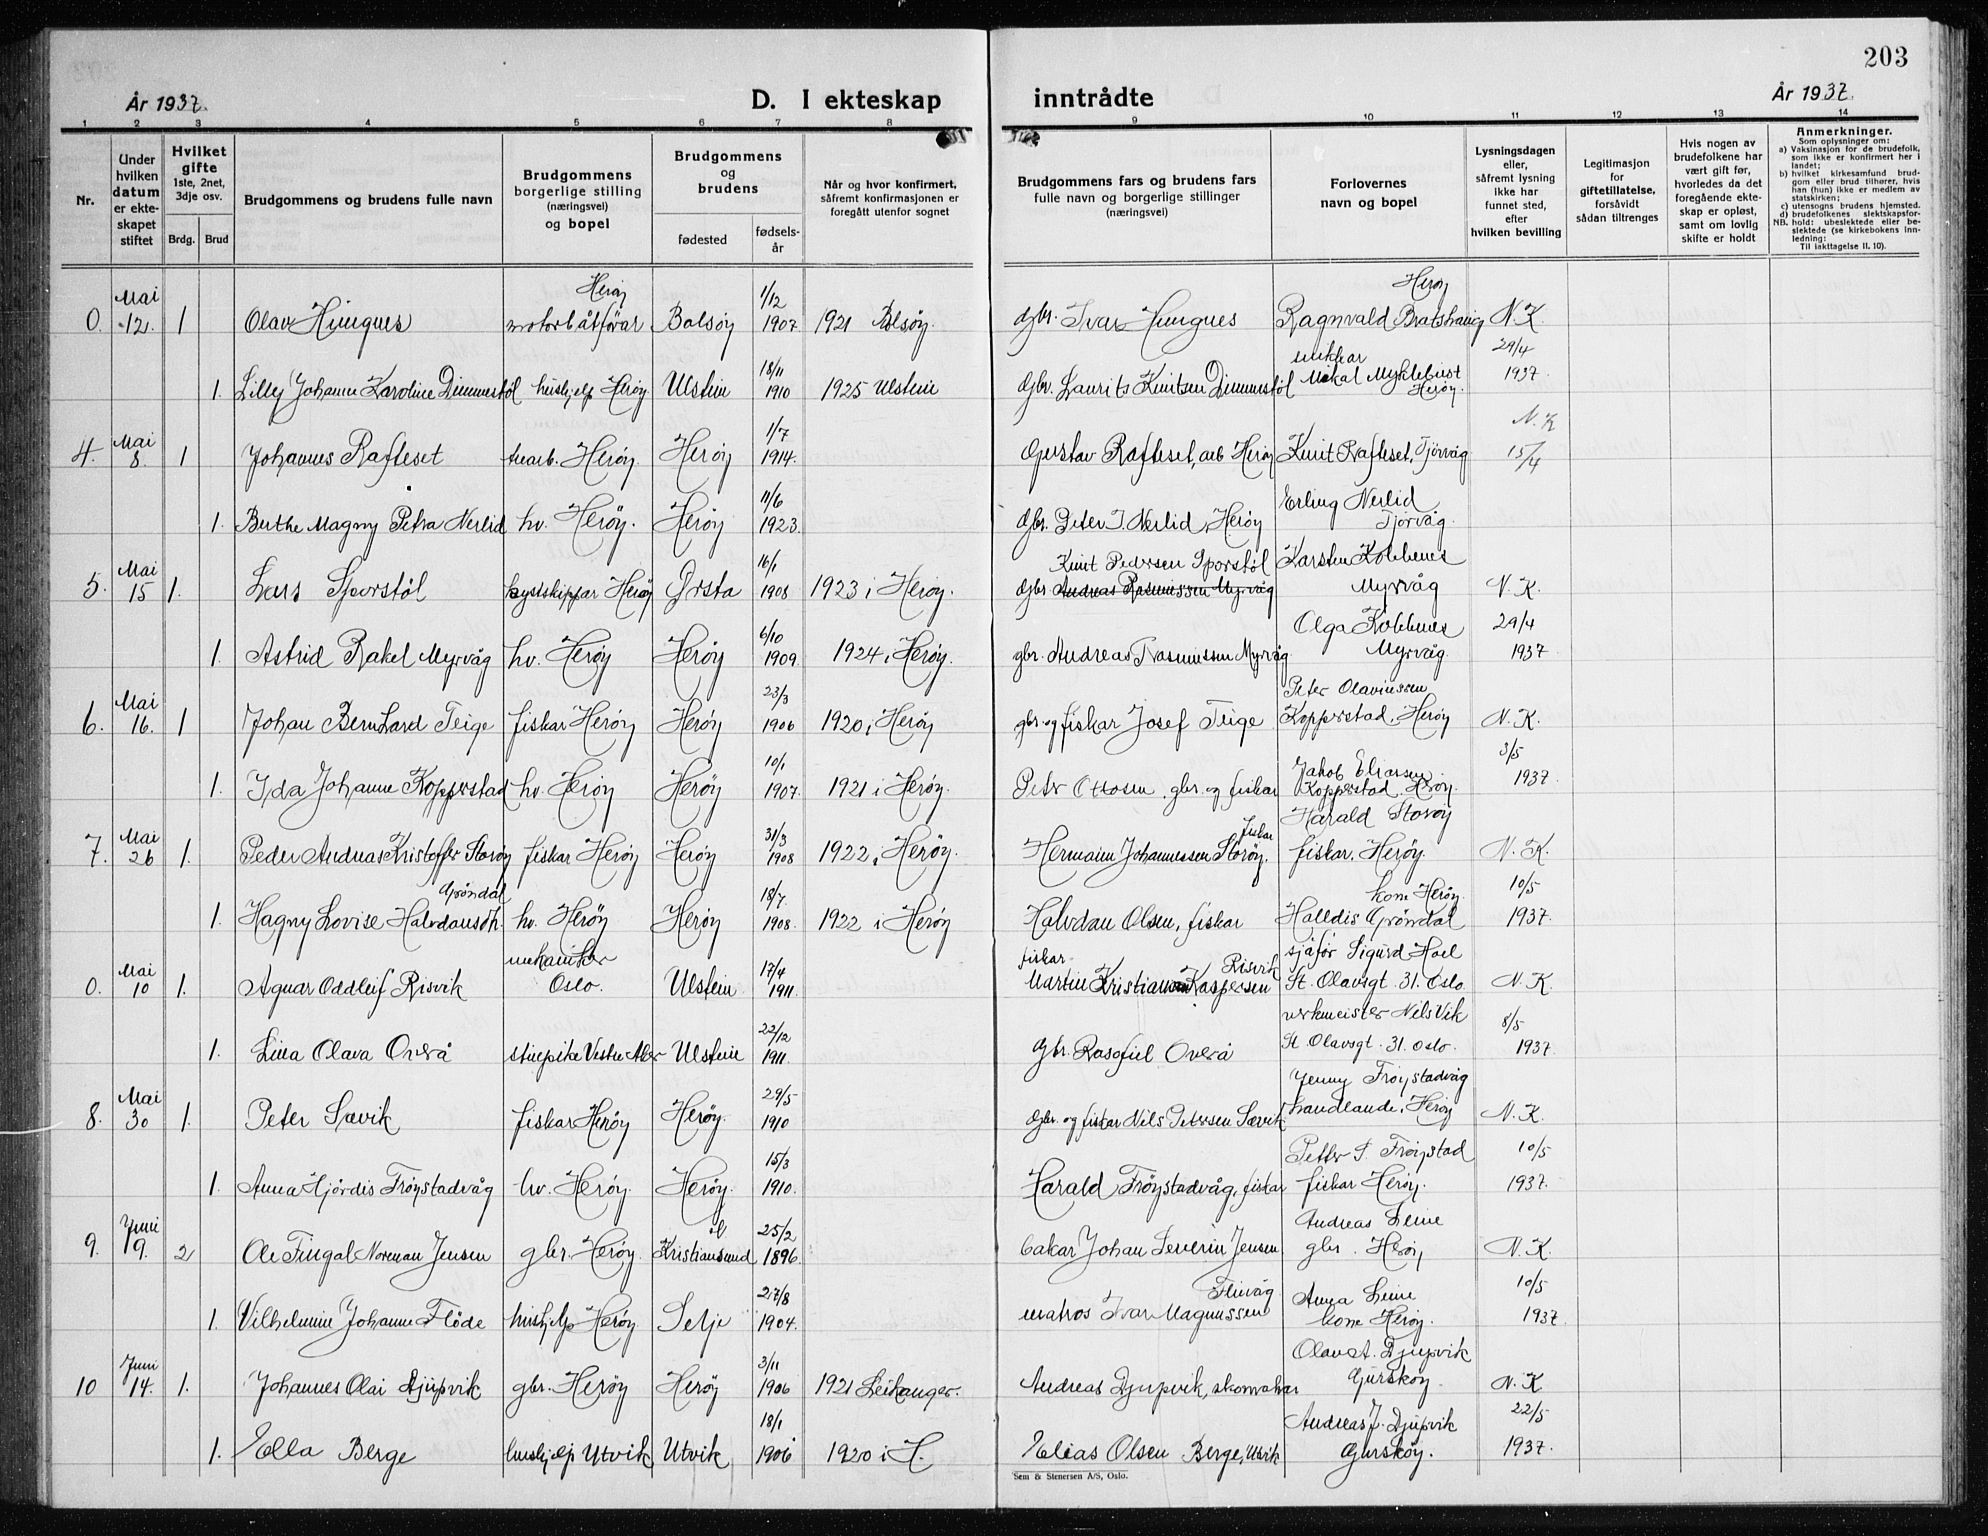 203
År 1937.
D. I ekteskap inntrådte
År 1937.
1 2 3 4 5 6 7 8 9 10 11 12 13 14
Nr.
Under hvilken datum er ekteskapet stiftet
Hvilket gifte 1ste, 2net, 3dje osv.
Brdg. Brud
Brudgommens og brudens fulle navn
Brudgommens borgerlige stilling (næringsvei) og bopel
Brudgommens og brudens
fødested
fødsels-år
Når og hvor konfirmert, såfremt konfirmasjonen er foregått utenfor sognet
Brudgommens fars og brudens fars fulle navn og borgerlige stillinger (næringsvei)
Forlovernes navn og bopel
Lysningsdagen eller, såfremt lysning ikke har funnet sted, efter hvilken bevilling
Legitimasjon for giftetillatelse, forsåvidt sådan tiltrenges
Hvis nogen av brudefolkene har vært gift før, hvorledes da det foregående ekteskap er opløst, samt om lovlig skifte er holdt
Anmerkninger.
Som oplysninger om:
a) Vaksinasjon for de brudefolk, som ikke er konfirmert her i landet;
b) hvilket kirkesamfund brudgom eller brud tilhører, hvis han (hun) ikke er medlem av statskirken;
c) utensogns brudens hjemsted.
d) brudefolkenes slektskapsforhold: ubeslektede eller beslektede (se kirkebokens innledning:
NB. Til iakttagelse II. 10).
0. Mai 12. 1 Olav Hungnes motorbåtförar Herøy Bolsøy 1/12 1907 1921 Bolsøy. gbr. Ivar Hungnes Ragnvald Bratshaug Herøy N.K.
1. Lilly Johanne Karoline Dimmestøl hushjelp Herøy Ulstein 18/11 1910 1925 Ulstein gbr. Laurits Knutsen Dimmestøl Mikal Myklebust Herøy. 29/4 1937.
4. Mai 8. 1 Johannes Rafteset Herøy. Herøy 1/7 1914. Gustav Rafteset, arb Herøy Knut Rafteset, Tjørvåg N.K. 15/4
1. Berthe Magny Petra Nerlid hv. Herøy. Herøy 11/6 1923. gbr. Peter J. Nerlid, Herøy Erling Nerlid Tjørvåg.
5. Mai 15 1. Lars Sporstøl Herøy Ørsta 16/1 1908 1923 i Herøy. gbr. Knut Pedersen Sporstøl Andreas Rasmussen Myrvåg Karsten Kobbenes Myrvåg N.K.
1. Astrid Rakel Myrvåg hv. Herøy Herøy 6/10 1909. 1924 i Herøy. gbr. Andreas Rasmussen Myrvåg Olga Kobbenes Myrvåg 29/4 1937
6. Mai 16. 1 Johan Bernhard Teige fiskar Herøy Herøy 23/3 1906 1920 i Herøy gbr. og fiskar Josef Teige Peter Olavinssen Kopperstad, Herøy N.K.
1. Ida Johanne Kopperstad hv. Herøy Herøy 10/1 1907. 1921 i Herøy. Peter Ottosen gbr. og fiskar Jakob Eliassen Kopperstad, Herøy. 3/5 1937.
7. Mai 26 1. Peder Andreas Kristoffer Storøy fiskar Herøy Herøy 31/3 1908 1922 i Herøy. Hermann Johannessen Storøy. fiskar Harald Storøy fiskar, Herøy. N.K.
1. Hagny Lovise Halvdansdh. Grøndal hv. Herøy Herøy 18/7. 1908. 1922 i Herøy Halvdan Olsen, fiskar Halldis Grøndal kone Herøy. 10/5 1937.
0. Mai 10 1. Agnar Oddleif Risvik mekaniker Oslo. Ulstein 17/4 1911. fiskar Martin Kristian Kaspersen Risvik sjåfør Sigurd Hoel St. Olavsgt. 31. Oslo. N.K.
1. Lina Olava Overå Vestre Aker Ulstein 22/12 1911. gbr. Rasofiel Overå verkmeister Nils Vik St. Olavsgt. 31. Oslo. 8/5 1937.
8. Mai 30 1. Peter Sævik fiskar Herøy Herøy. 29/5 1910 gbr. og fiskar Nils Petersen Sævik Jenny Frøystadvåg handlande, Herøy N.K.
1. Anna Hjørdis Frøystadvåg hv. Herøy. Herøy. 15/3 1910. Harald Frøystadvåg, fiskar Petter P. Frøystad fiskar Herøy. 10/5 1937.
9. Juni 9. 2 Ole Fingal Norman Jensen gbr. Herøy. Kristiansund 25/2 1896. bakar Johan Severin Jensen Andreas Leine gbr. Herøy N.K.
1. Vilhelmine Johanne Flöde hushjelp Herøy Selje 27/8 1904. matros Ivar Magnussen Anna Leine kone Herøy. 10/5 1937
10 Juni 14. 1. Johannes Olai Djupvik gbr. Herøy Herøy 3/11 1906 1921 Leikanger. Andreas Djupvik, skomakar Olav A. Djupvik Gurskøy. N.K.
1. Ella Berge hushjelp Utvik Utvik 18/1 1906 1920 i H. Elias Olsen Berge, Utvik Andreas J. Djupvik Gurskøy. 22/5 1937.
Sem & Stenersen A/S, Oslo.